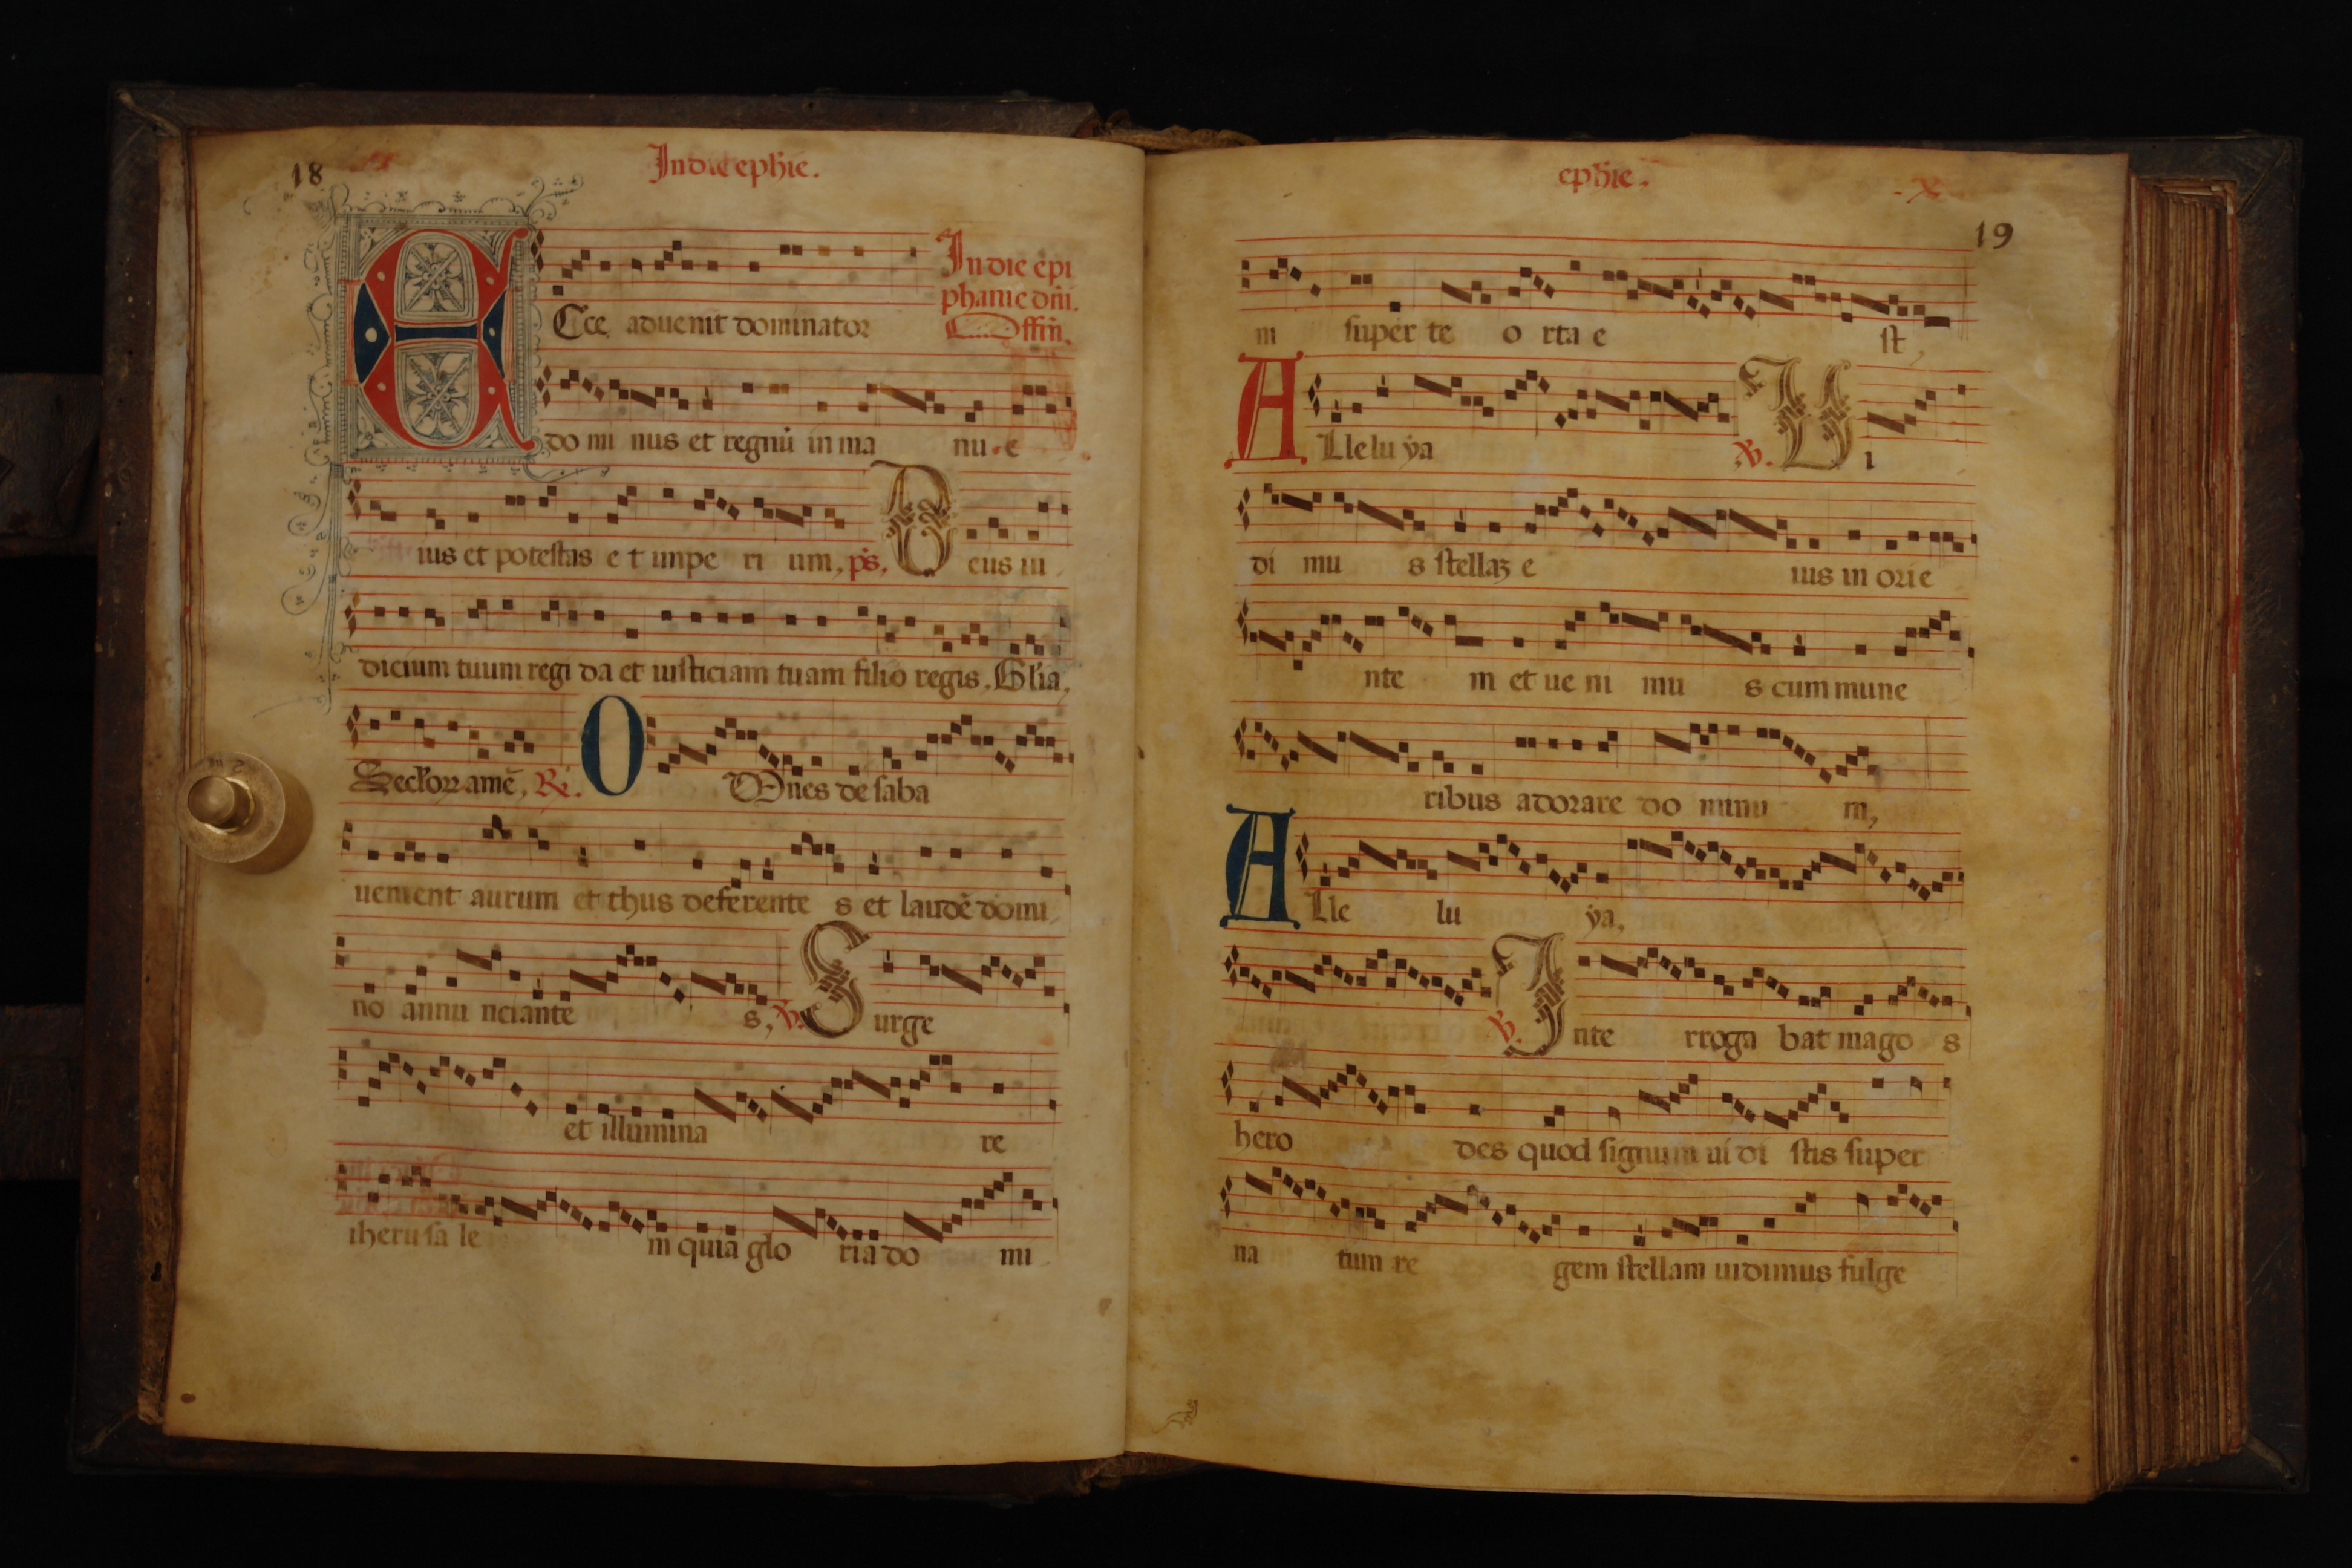 18
In die ephie.
In die epi
phanie dni.
Offm.
Ecce aduenit dominator
do mi nus et regnū in ma nu. e
ius et potestas e t impe ri um, ps. Deus iu
dicium tuum regi da et iusticiam tuam filio regis. Glia.
Seclorz amē, R. O Mnes de saba
uenient aurum et thus deferente s et laudē domi
no annu nciante s, V. Surge
et illumina re
iherusa le m quia glo ria do mi
ephie. X
19
ni super te o rta e st,
ALleluya V. Vi
di mu s stellaz e ius in orie
nte m et ue ni mu s cum mune
ribus adorare do minu m,
ALle lu ya,
V. Inte rroga bat mago s
hero des quod signum uidi stis super
na tum re gem stellam uidimus fulge